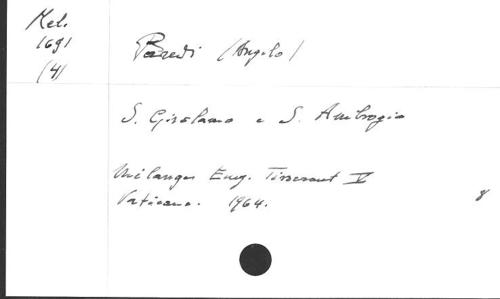 Mel.
1691
(4)
Paredi (Angelo)
S. Girolamo e S. Ambrogio
Mélanges Eug. Tisserant V
Vaticano. 1964.
8